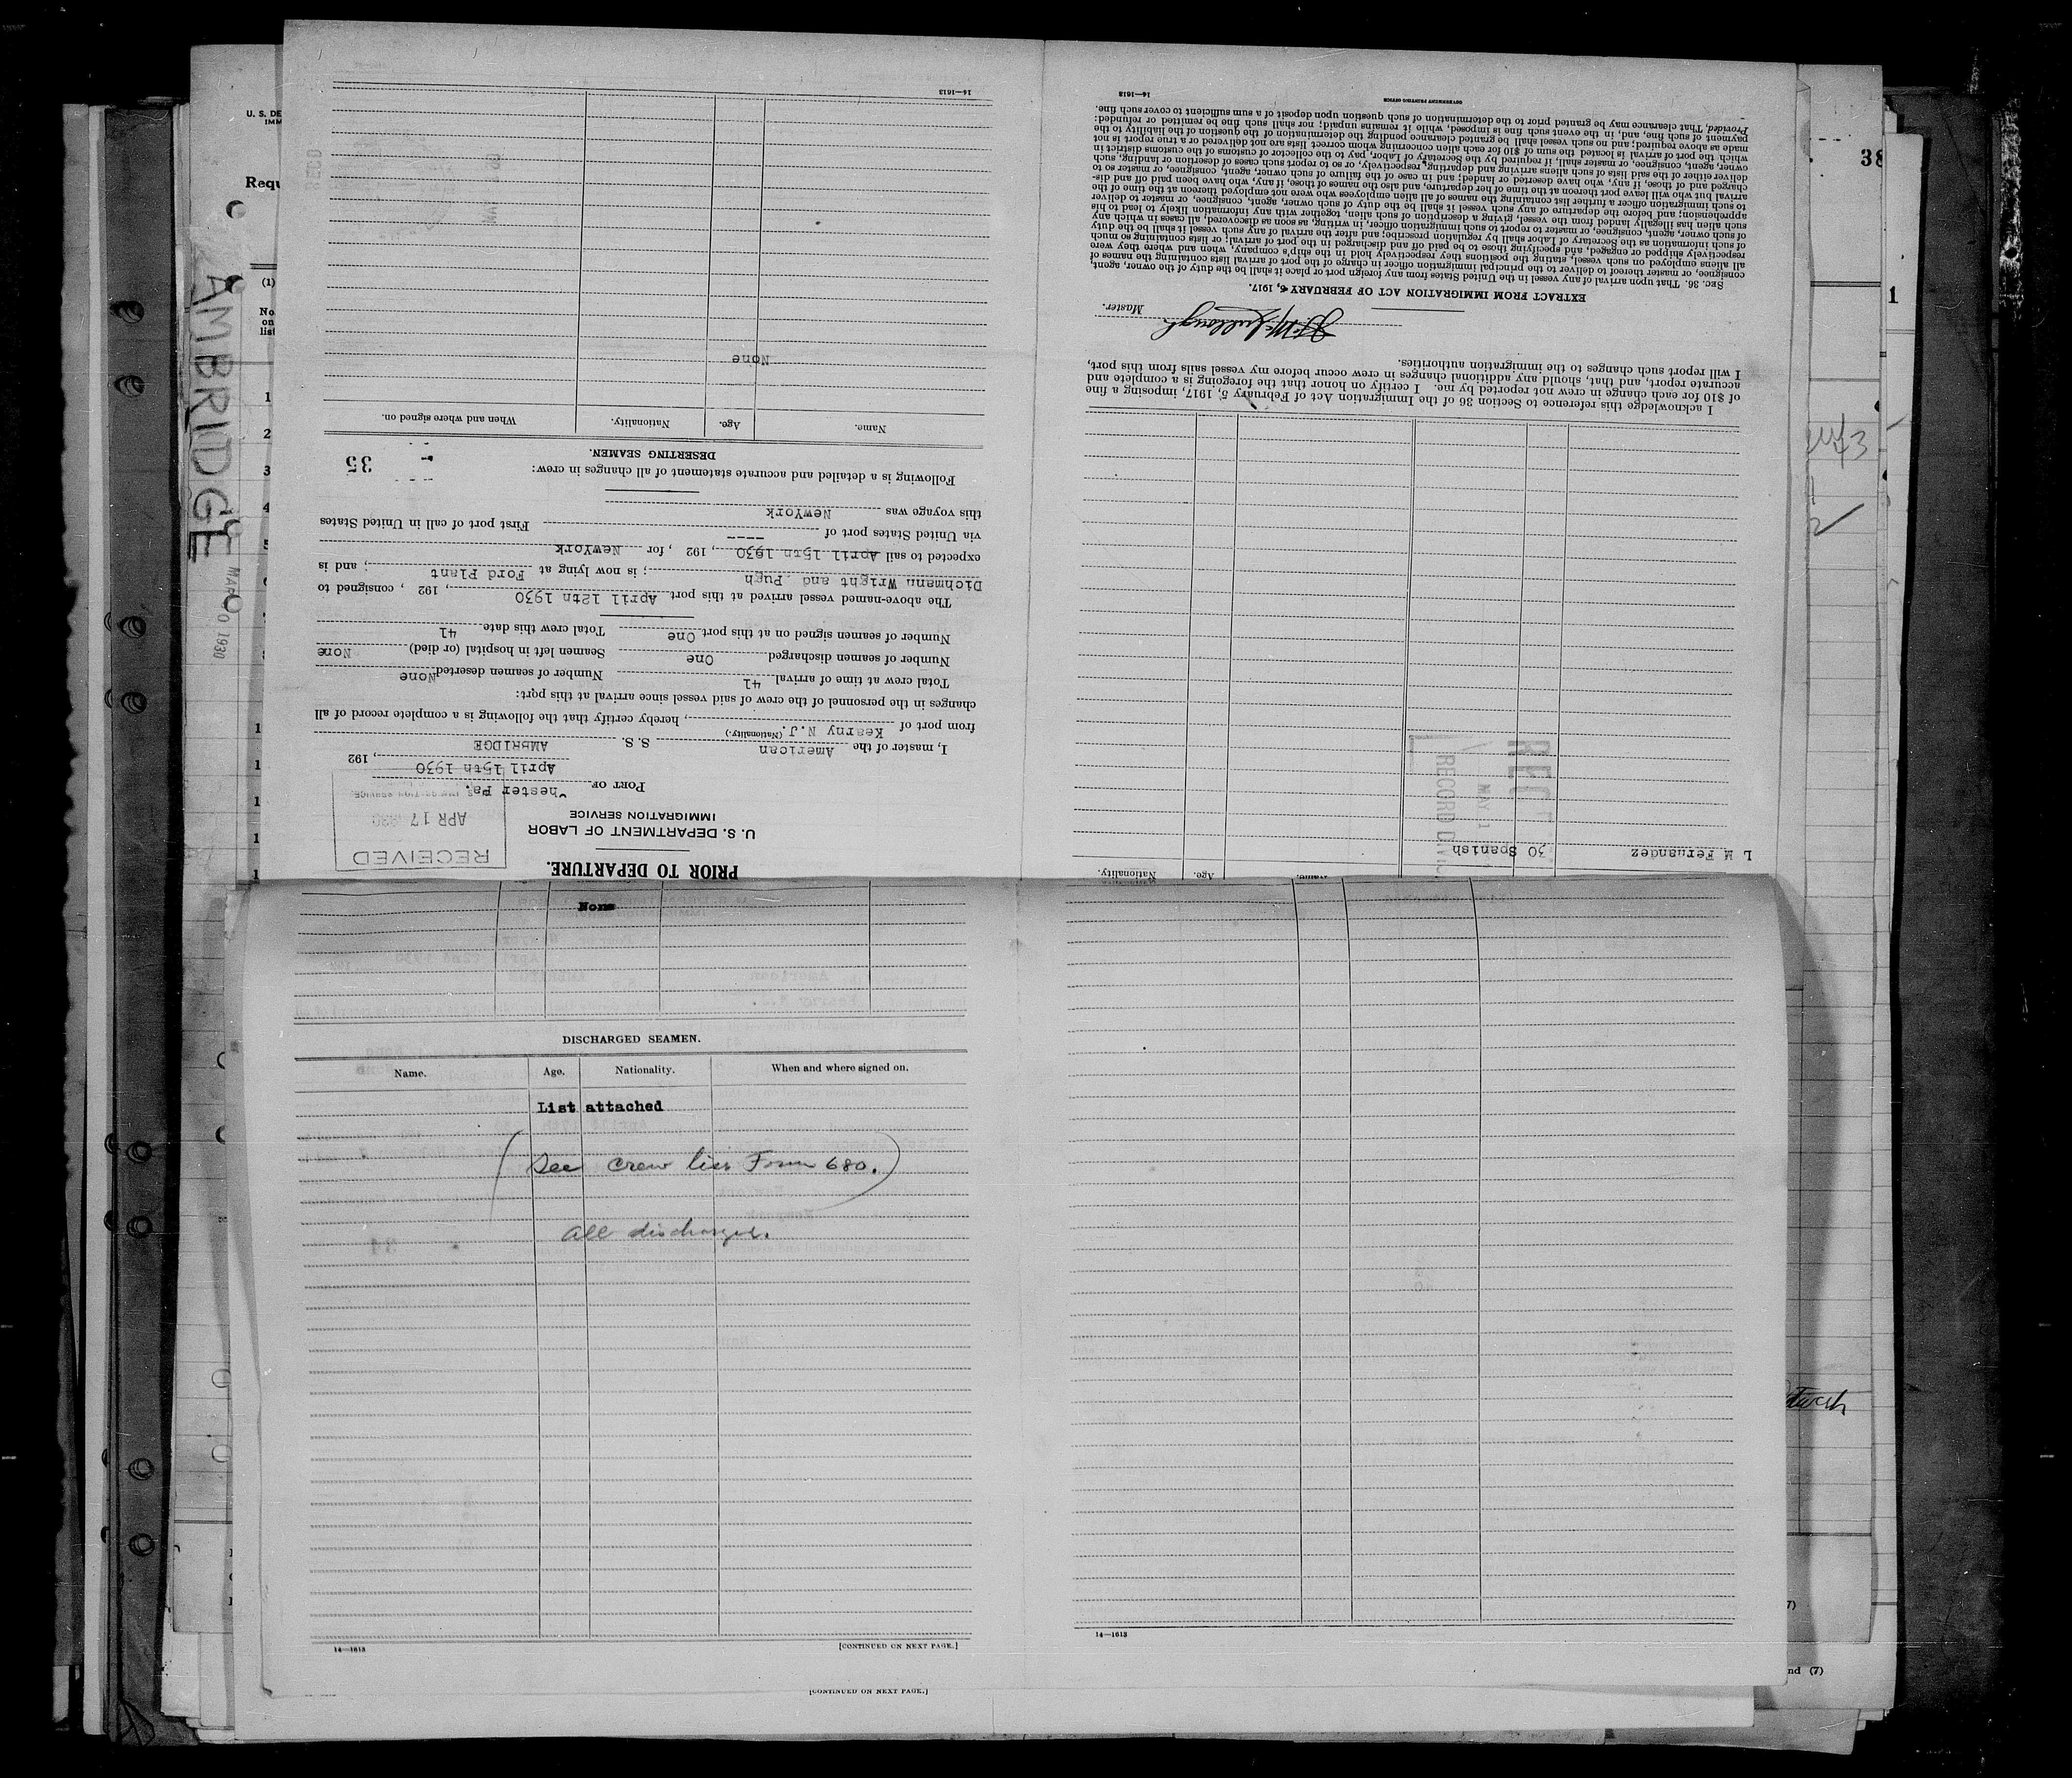 PRIOR TO DEPARTURE.
U. S. DEPARTMENT OF LABOR
IMMIGRATION SERVICE
RECEIVED
APR 17 1930
PORT OF Chester Pa.
April 15th 1930, 192
I, master of the American S. S. AMBRIDGE
(Nationality.)
from port of Kearny N.J., hereby certify that the following is a complete record of all
changes in the personnel of the crew of said vessel since arrival at this port:
Total crew at time of arrival 41 Number of seamen deserted None
Number of seamen discharged One Seamen left in hospital (or died) None
Number of seamen signed on at this port One Total crew this date 41
The above-named vessel arrived at this port April 12th 1930, 192 , consigned to
Dichmann Wright and Pugh; is now lying at Ford Plant; and is
expected to sail April 15th 1930, 192 , for NewYork
via United States port of ---- First port of call in United States
this voyage was NewYork
Following is a detailed and accurate statement of all changes in crew:
35
DESERTING SEAMEN.
Name. Age. Nationality. When and where signed on.
None
14—1613
Age. Nationality.
L M Fernandez 30 Spanish
MAY 1
RECORD
I acknowledge this reference to Section 36 of the Immigration Act of February 5, 1917, imposing a fine
of $10 for each change in crew not reported by me. I certify on honor that the foregoing is a complete and
accurate report, and that, should any additional changes in crew occur before my vessel sails from this port,
I will report such changes to the immigration authorities.
Master.
EXTRACT FROM IMMIGRATION ACT OF FEBRUARY 5, 1917.
SEC. 36. That upon arrival of any vessel in the United States from any foreign port or place it shall be the duty of the owner, agent,
consignee, or master thereof to deliver to the principal immigration officer in charge of the port of arrival lists containing the names of
all aliens employed on such vessel, stating the positions they respectively hold in the ship's company, when and where they were
respectively shipped or engaged, and specifying those to be paid off and discharged in the port of arrival; or lists containing so much
of such information as the Secretary of Labor shall by regulation prescribe; and after the arrival of any such vessel it shall be the duty
of such owner, agent, consignee, or master to report to such immigration officer, in writing, as soon as discovered, all cases in which any
such alien has illegally landed from the vessel, giving a description of such alien, together with any information likely to lead to his
apprehension; and before the departure of any such vessel it shall be the duty of such owner, agent, consignee, or master to deliver
to such immigration officer a further list containing the names of all alien employees who were not employed thereon at the time of the
arrival but who will leave port thereon at the time of her departure, and also the names of those, if any, who have been paid off and dis-
charged and of those, if any, who have deserted or landed; and in case of the failure of such owner, agent, consignee, or master so to
deliver either of the said lists of such aliens arriving and departing, respectively, or so to report such cases of desertion or landing, such
owner, agent, consignee, or master shall, if required by the Secretary of Labor, pay to the collector of customs of the customs district in
which the port of arrival is located the sum of $10 for each alien concerning whom correct lists are not delivered or a true report is not
made as above required; and no such vessel shall be granted clearance pending the determination of the question of the liability to the
payment of such fine, and, in the event such fine is imposed, while it remains unpaid; nor shall such fine be remitted or refunded:
Provided, That clearance may be granted prior to the determination of such question upon deposit of a sum sufficient to cover such fine.
14—1613 GOVERNMENT PRINTING OFFICE
AMBRIDGE
1930
U. S. DE
IMM
Requ
(1)
No.
on
list
1
2
3
4
5
38
1
None
DISCHARGED SEAMEN.
Name. Age. Nationality. When and where signed on.
List attached
(See crew list Form 680.)
All discharged.
14—1613 [CONTINUED ON NEXT PAGE.]
14—1613
[CONTINUED ON NEXT PAGE.]
7)
nd (7)